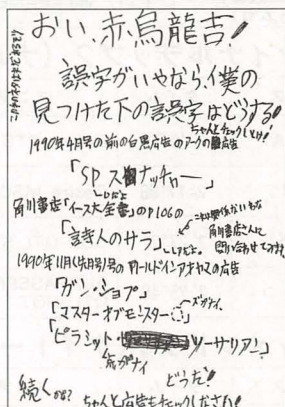 おい、赤烏龍吉!
誤字がいやなら、僕の
見つけた下の誤字はどうする!
ちゃんとチェックしとけ!
1990年4月号の前の白黒広告のアークの広告
「SPスナッチャー」
しDだよ
角川書店「イース大全書」のP106の
これは関係ないな
角川書店さんに
問い合わせてみます。
「詩人のサラ」
1990年11月(先月)号のワールドインアオヤマの広告
「ガン・ショプ」
「マスターオブモンスター」
ズがナイ
「ピラミット・ソーサリアン」
気がナイ
どうだ!
続くかな?
ちゃんと広告もチェックしなさい!